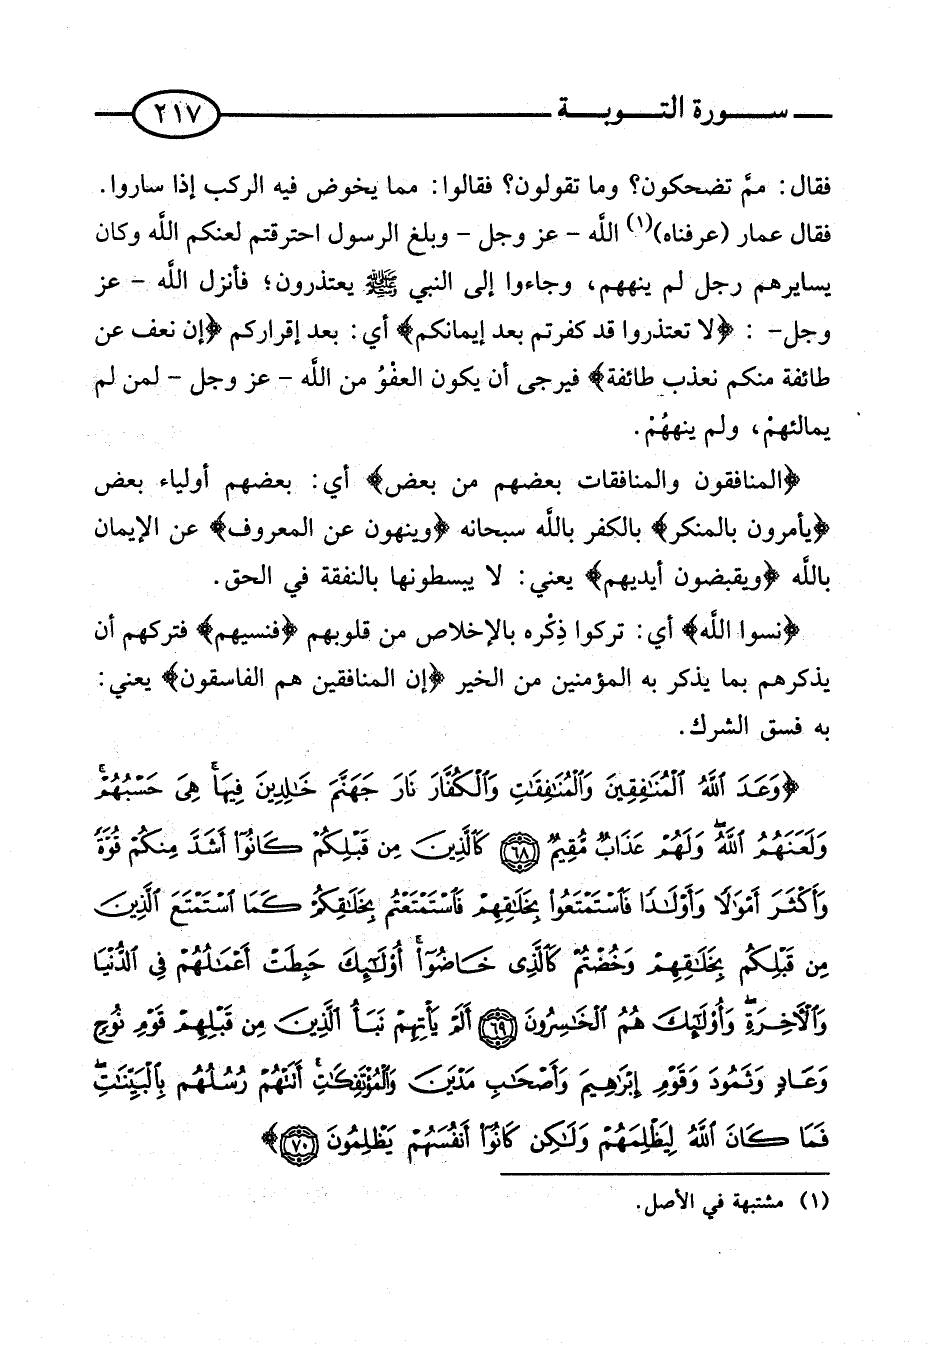 سورة التوبة ٢١٧
فقال: ممَّ تضحكون؟ وما تقولون؟ فقالوا: مما يخوض فيه الركب إذا ساروا.
فقال عمار (عرفناه)(١) اللَّه - عز وجل - وبلغ الرسول احترقتم لعنكم الله وكان
يسايرهم رجل لم ينههم، وجاءوا إلى النبي ﷺ يعتذرون؛ فأنزل اللَّه - عز
وجل- : ﴿لا تعتذروا قد كفرتم بعد إيمانكم﴾ أي: بعد إقراركم ﴿إن نعف عن
طائفة منكم نعذب طائفة﴾ فيرجى أن يكون العفْوُ من اللَّه - عز وجل - لمن لم
يمالئهمْ، ولم ينههُمْ.
﴿المنافقون والمنافقات بعضهم من بعض﴾ أي: بعضهم أولياء بعض
﴿يأمرون بالمنكر﴾ بالكفر باللَّه سبحانه ﴿وينهون عن المعروف﴾ عن الإيمان
باللَّه ﴿ويقبضون أيديهم﴾ يعني: لا يبسطونها بالنفقة في الحق.
﴿نسوا اللَّه﴾ أي: تركوا ذِكْره بالإخلاص من قلوبهم ﴿فنسيهم﴾ فتركهم أن
يذكرهم بما يذكر به المؤمنين من الخير ﴿إن المنافقين هم الفاسقون﴾ يعني:
به فسق الشرك.
﴿وَعَدَ ٱللَّهُ ٱلْمُنَٰفِقِينَ وَٱلْمُنَٰفِقَٰتِ وَٱلْكُفَّارَ نَارَ جَهَنَّمَ خَٰلِدِينَ فِيهَا ۚ هِىَ حَسْبُهُمْ ۚ
وَلَعَنَهُمُ ٱللَّهُ ۖ وَلَهُمْ عَذَابٌ مُّقِيمٌ ٦٨ كَٱلَّذِينَ مِن قَبْلِكُمْ كَانُوٓا۟ أَشَدَّ مِنكُمْ قُوَّةً
وَأَكْثَرَ أَمْوَٰلًا وَأَوْلَٰدًا فَٱسْتَمْتَعُوا۟ بِخَلَٰقِهِمْ فَٱسْتَمْتَعْتُم بِخَلَٰقِكُمْ كَمَا ٱسْتَمْتَعَ ٱلَّذِينَ
مِن قَبْلِكُم بِخَلَٰقِهِمْ وَخُضْتُمْ كَٱلَّذِى خَاضُوٓا۟ ۚ أُو۟لَٰٓئِكَ حَبِطَتْ أَعْمَٰلُهُمْ فِى ٱلدُّنْيَا
وَٱلْءَاخِرَةِ ۖ وَأُو۟لَٰٓئِكَ هُمُ ٱلْخَٰسِرُونَ ٦٩ أَلَمْ يَأْتِهِمْ نَبَأُ ٱلَّذِينَ مِن قَبْلِهِمْ قَوْمِ نُوحٍ
وَعَادٍ وَثَمُودَ وَقَوْمِ إِبْرَٰهِيمَ وَأَصْحَٰبِ مَدْيَنَ وَٱلْمُؤْتَفِكَٰتِ ۚ أَتَتْهُمْ رُسُلُهُم بِٱلْبَيِّنَٰتِ ۖ
فَمَا كَانَ ٱللَّهُ لِيَظْلِمَهُمْ وَلَٰكِن كَانُوٓا۟ أَنفُسَهُمْ يَظْلِمُونَ ٧٠﴾
(١) مشتبهة في الأصل.